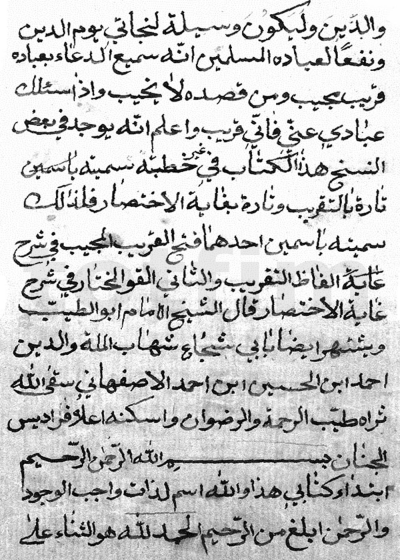 والدين وليكون وسيلة لنجاتي يوم الدين
ونفعا لعباده المسلمين انه سميع الدعاء بعباده
قريب مجيب ومن قصده لا يخيب واذا سئلك
عبادي عني فاني قريب واعلم انه يوجد في بعض
النسخ هذا الكتاب في غير خطبته سميته باسمين
تارة بالتقريب وتارة بغاية الاختصار فلذلك
سميته باسمين احدهما فتح القريب المجيب في شرح
غاية الفاظ التقريب والثاني القول المختار في شرح
غاية الاختصار قال الشيخ الامام ابو الطيب
ويشتهر ايضا بابي شجاع شهاب الملة والدين
احمد ابن الحسين ابن احمد الاصفهاني سقى الله
ثراه طيب الرحمة والرضوان واسكنه اعلا فراديس
الجنان بسم الله الرحمن الرحيم
ابتداء كتابي هذا والله اسم لذات واجب الوجود
والرحمن ابلغ من الرحيم الحمد لله هو الثناء على